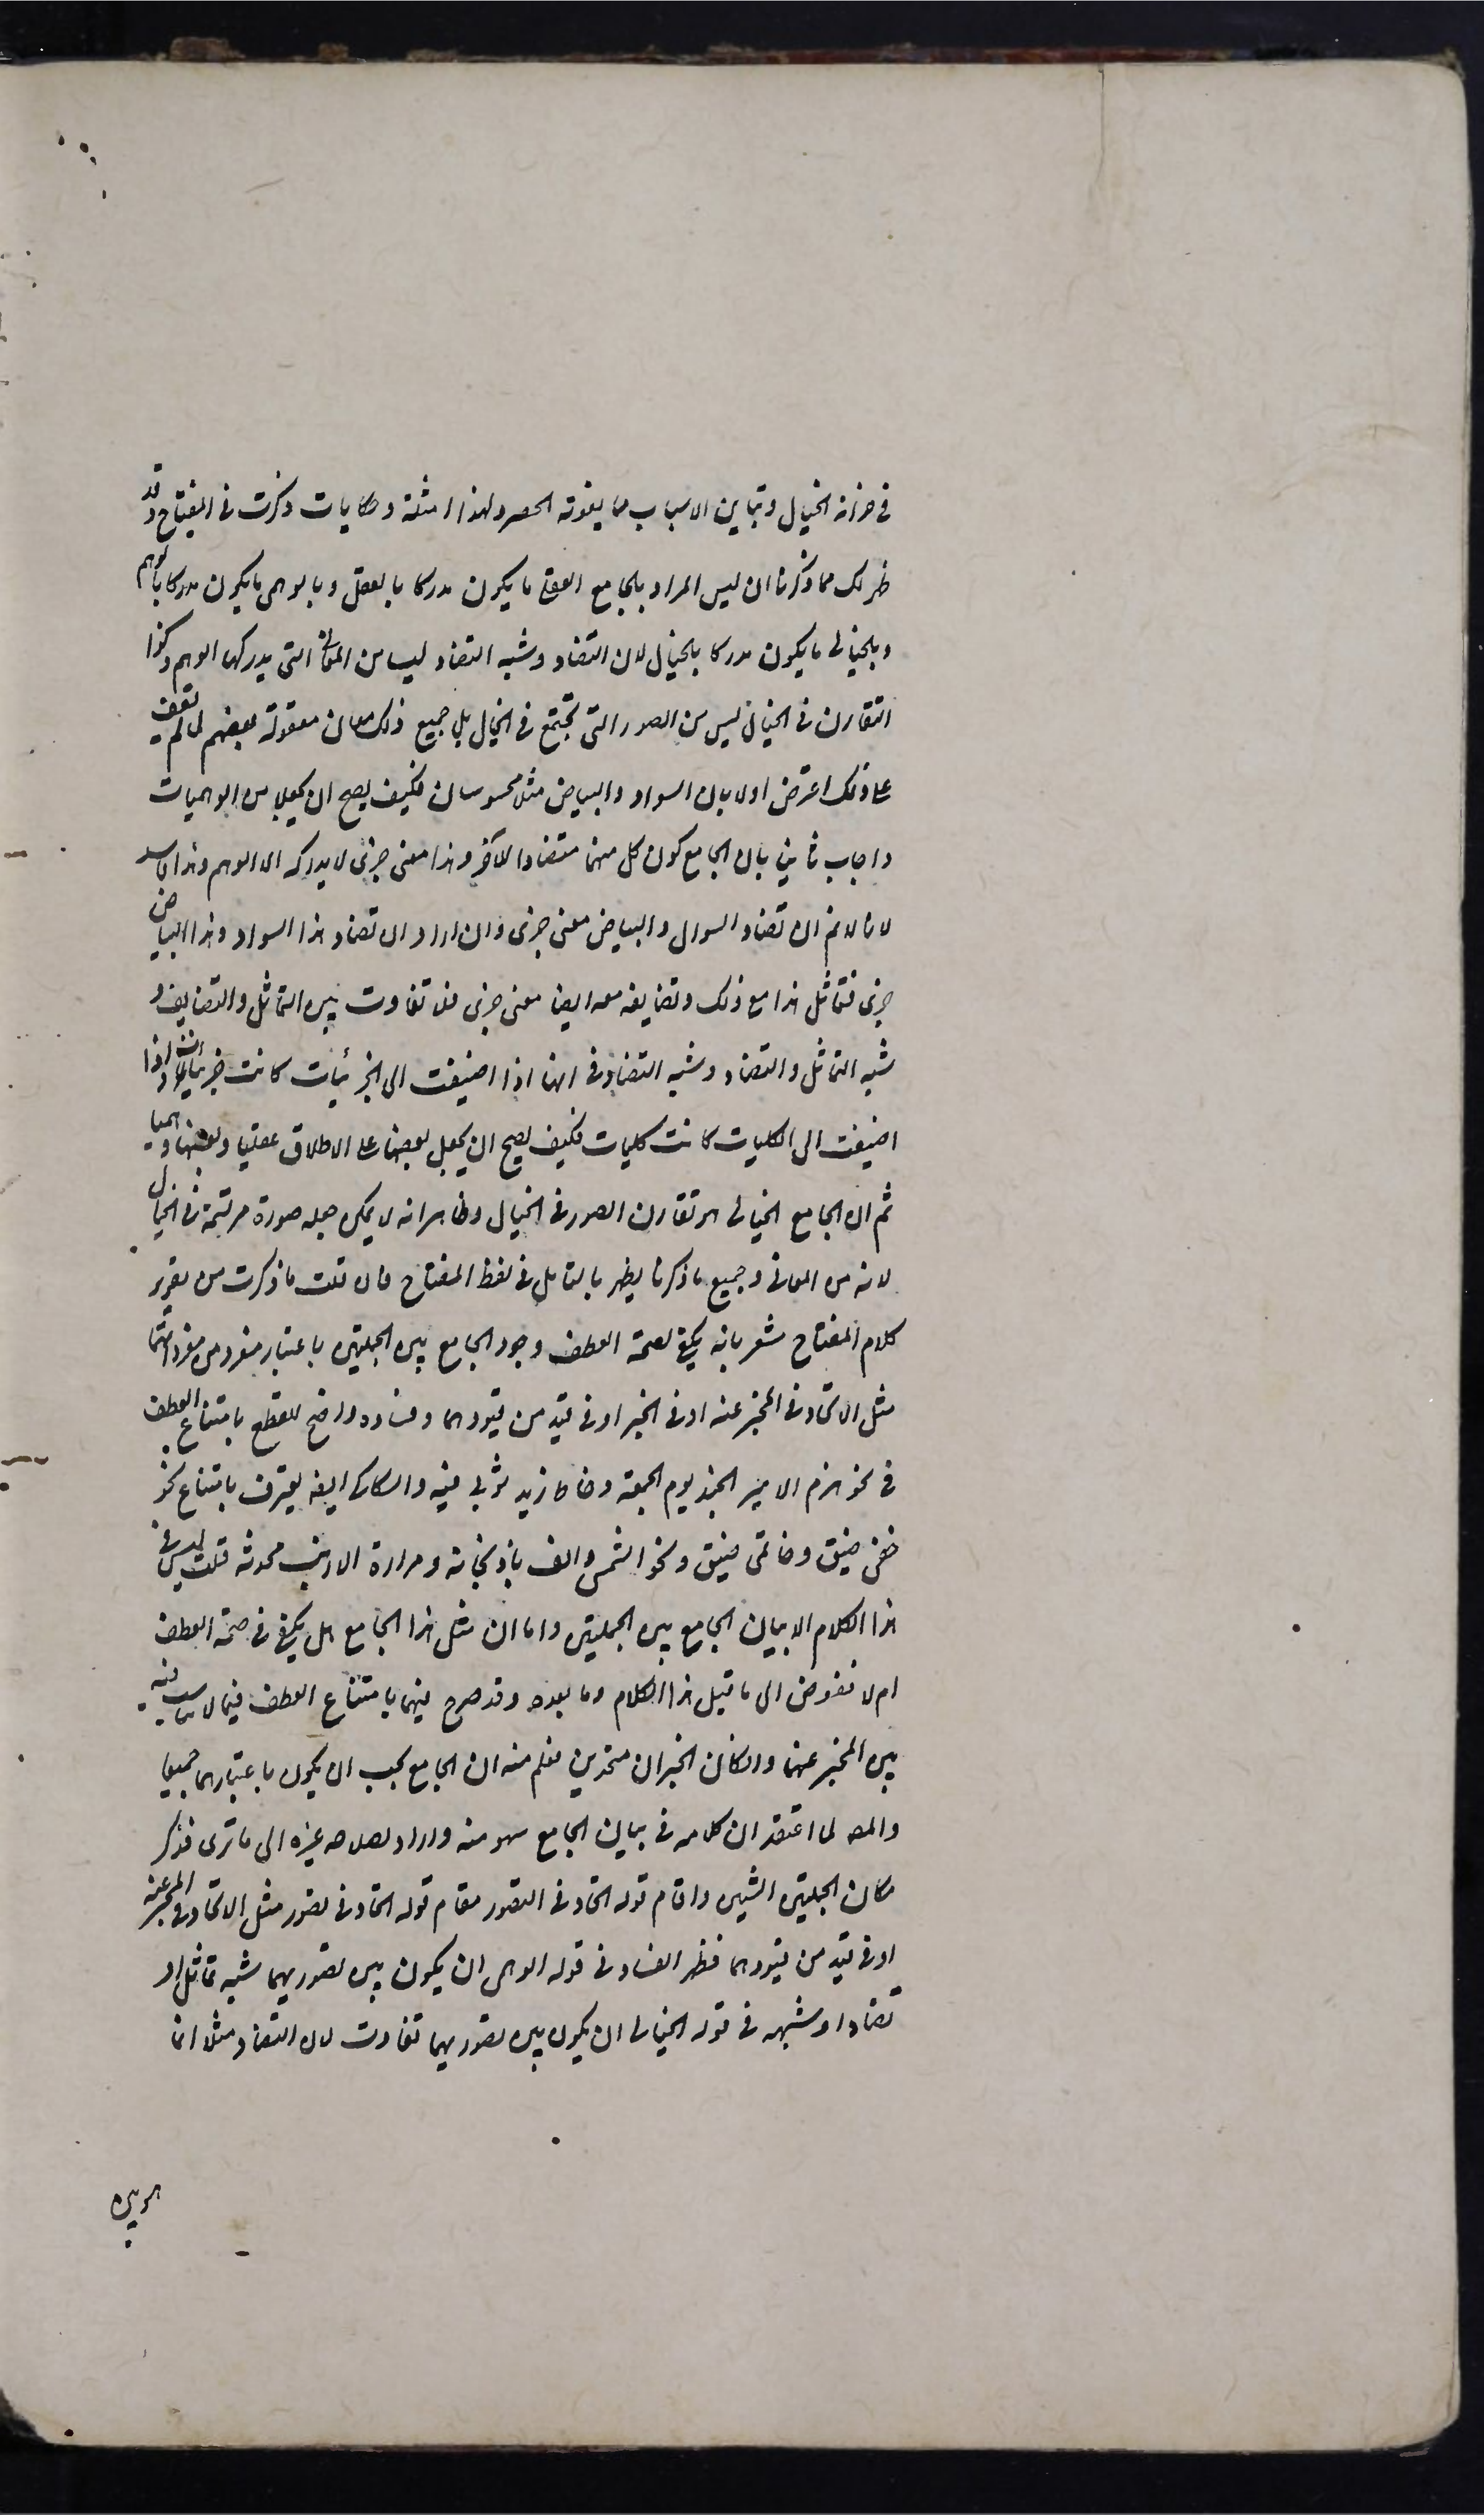 في خزانة الخيال وتباين الاسباب مما يفوته الحصر ولهذا امثلة وحكايات ذكرت في المفتاح وقد
ظهر لك مما ذكرنا ان ليس المراد بالجامع العقلي ما يكون مدركا بالعقل وبالوهمي ما يكون مدركا بالوهم
وبالخيالي ما يكون مدركا بالخيال لان التضاد وشبه التضاد ليسا من المعاني التي يدركها الوهم وكذا
التقارن في الخيال ليس من الصور التي تجتمع في الخيال بل جميع ذلك معان معقولة وبعضهم لما لم يقف
على ذلك اعترض اولا بان السواد والبياض مثلا محسوسان فكيف يصح ان يجعلا من الوهميات
واجاب ثانيا بان الجامع كون كل منهما متضادا للآخر وهذا معنى جزئي لا يدركه الا الوهم وهذا فاسد
لانا لا نم ان تضاد السواد والبياض معنى جزئي وان اراد ان تضاد هذا السواد وهذا البياض
جزئي فتماثل هذا مع ذلك وتضايفه معه ايضا معنى جزئي فلا تفاوت بين التماثل والتضايف و
شبه التماثل والتضاد وشبه التضاد في انها اذا اضيفت الى الجزئيات كانت جزئيات واذا
اضيفت الى الكليات كانت كليات فكيف يصح ان يجعل بعضها على الاطلاق عقليا وبعضها وهميا
ثم ان الجامع الخيالي هو تقارن الصور في الخيال وظاهر انه لا يمكن جعله صورة مرتسمة في الخيال
لانه من المعاني وجميع ما ذكرنا يظهر بالتأمل في لفظ المفتاح فان قلت ما ذكرت من تقرير
كلام المفتاح مشعر بانه يكفي لصحة العطف وجود الجامع بين الجملتين باعتبار مفرد من مفرداتهما
مثل الاتحاد في المخبر عنه او في الخبر او في قيد من قيودهما وفساده واضح للقطع بامتناع العطف
في نحو هزم الامير الجند يوم الجمعة وخاط زيد ثوبي فيه والسكاكي ايضا يعترف بامتناع نحو
خفي ضيق وخاتمي ضيق ونحو الشمس والف باذنجانة ومرارة الارنب محدثة قلت ليس في
هذا الكلام الا بيان الجامع بين الجملتين واما ان مثل هذا الجامع هل يكفي في صحة العطف
ام لا فمفوض الى ما قبل هذا الكلام وما بعده وقد صرح فيهما بامتناع العطف فيما لا يناسب فيه
بين المخبر عنهما وان كان الخبران متحدين فعلم منه ان الجامع يجب ان يكون باعتبارهما جميعا
والمص لما اعتقد ان كلامه في بيان الجامع سهو منه واراد اصلاحه غيره الى ما ترى فذكر
مكان الجملتين الشيئين واقام قوله اتحاد في التصور مقام قوله اتحاد في تصور مثل الاتحاد في المخبر عنه
او في قيد من قيودهما فظهر الفساد في قوله الوهمي ان يكون بين تصوريهما شبه تماثل او
تضاد او شبهه في قوله الخيالي ان يكون بين تصوريهما تفاوت لان التضاد مثلا انما
هو بين